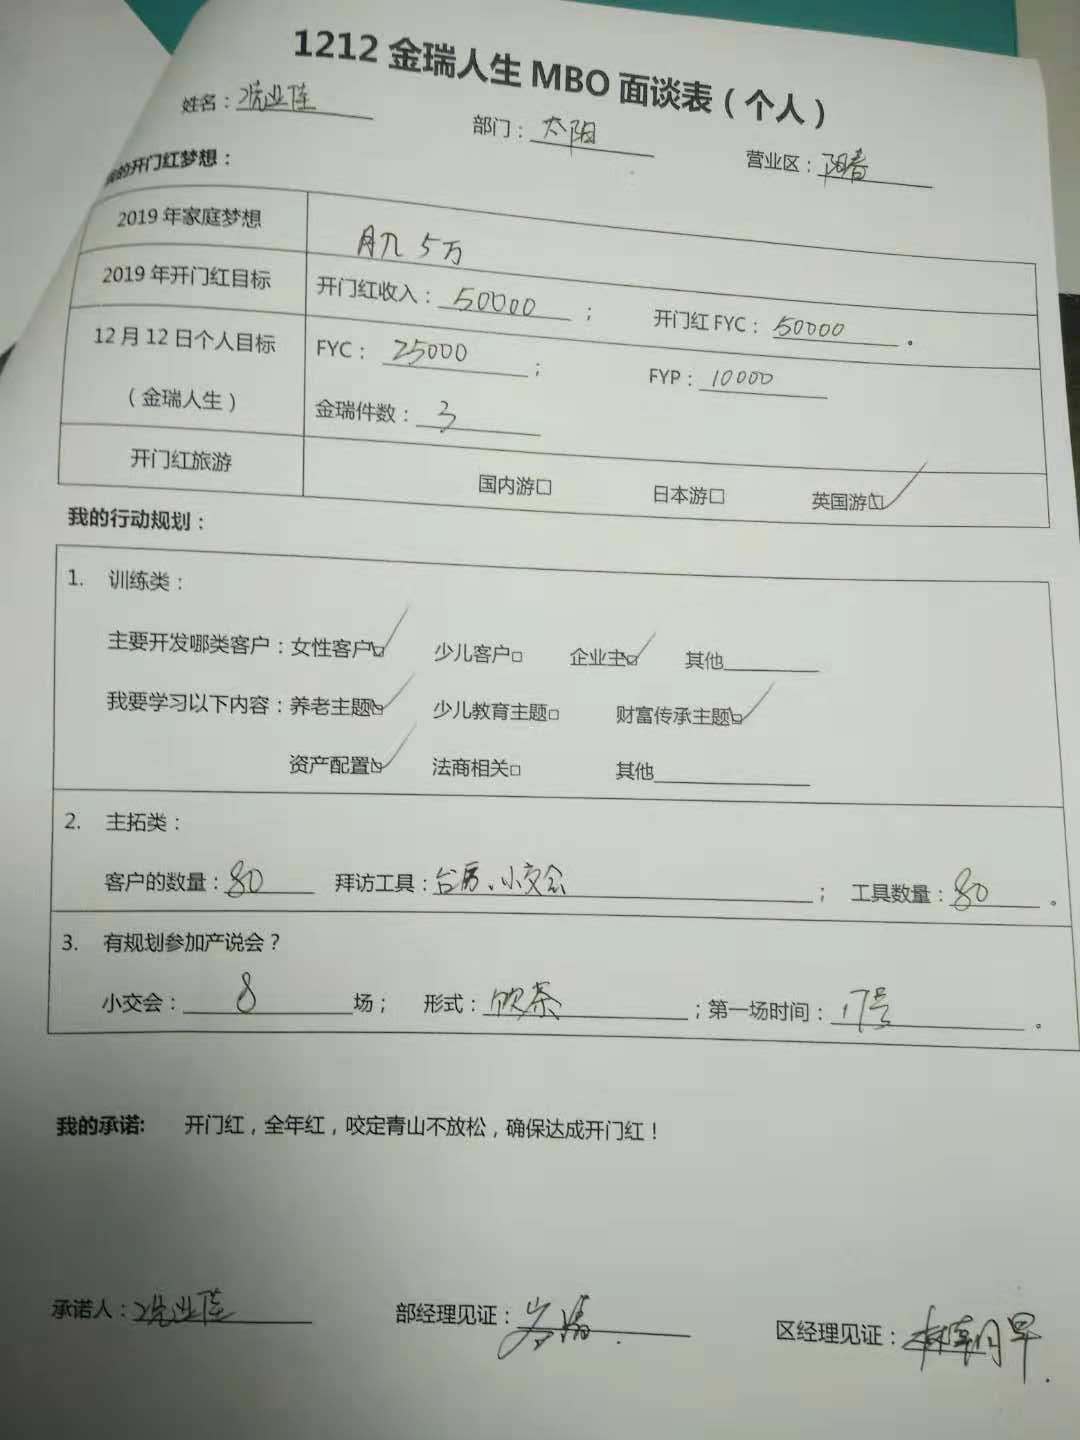 1212 金瑞人生 MBO 面谈表（个人）
姓名：冼业佳 部门：太阳 营业区：阳春
的开门红梦想：
2019 年家庭梦想 月入 5万
2019 年开门红目标 开门红收入：50000 ； 开门红 FYC：50000 。
12 月 12 日个人目标 FYC：25000 ； FYP：10000
（金瑞人生） 金瑞件数：3
开门红旅游 国内游□ 日本游□ 英国游□✓
我的行动规划：
1. 训练类：
主要开发哪类客户：女性客户□✓ 少儿客户□ 企业主□✓ 其他
我要学习以下内容：养老主题□✓ 少儿教育主题□ 财富传承主题□✓
资产配置□✓ 法商相关□ 其他
2. 主拓类：
客户的数量：80 拜访工具：台历、小交会 ； 工具数量：80 。
3. 有规划参加产说会？
小交会：8 场； 形式：饮茶 ；第一场时间：17号 。
我的承诺: 开门红，全年红，咬定青山不放松，确保达成开门红！
承诺人：冼业佳 部经理见证： 区经理见证：